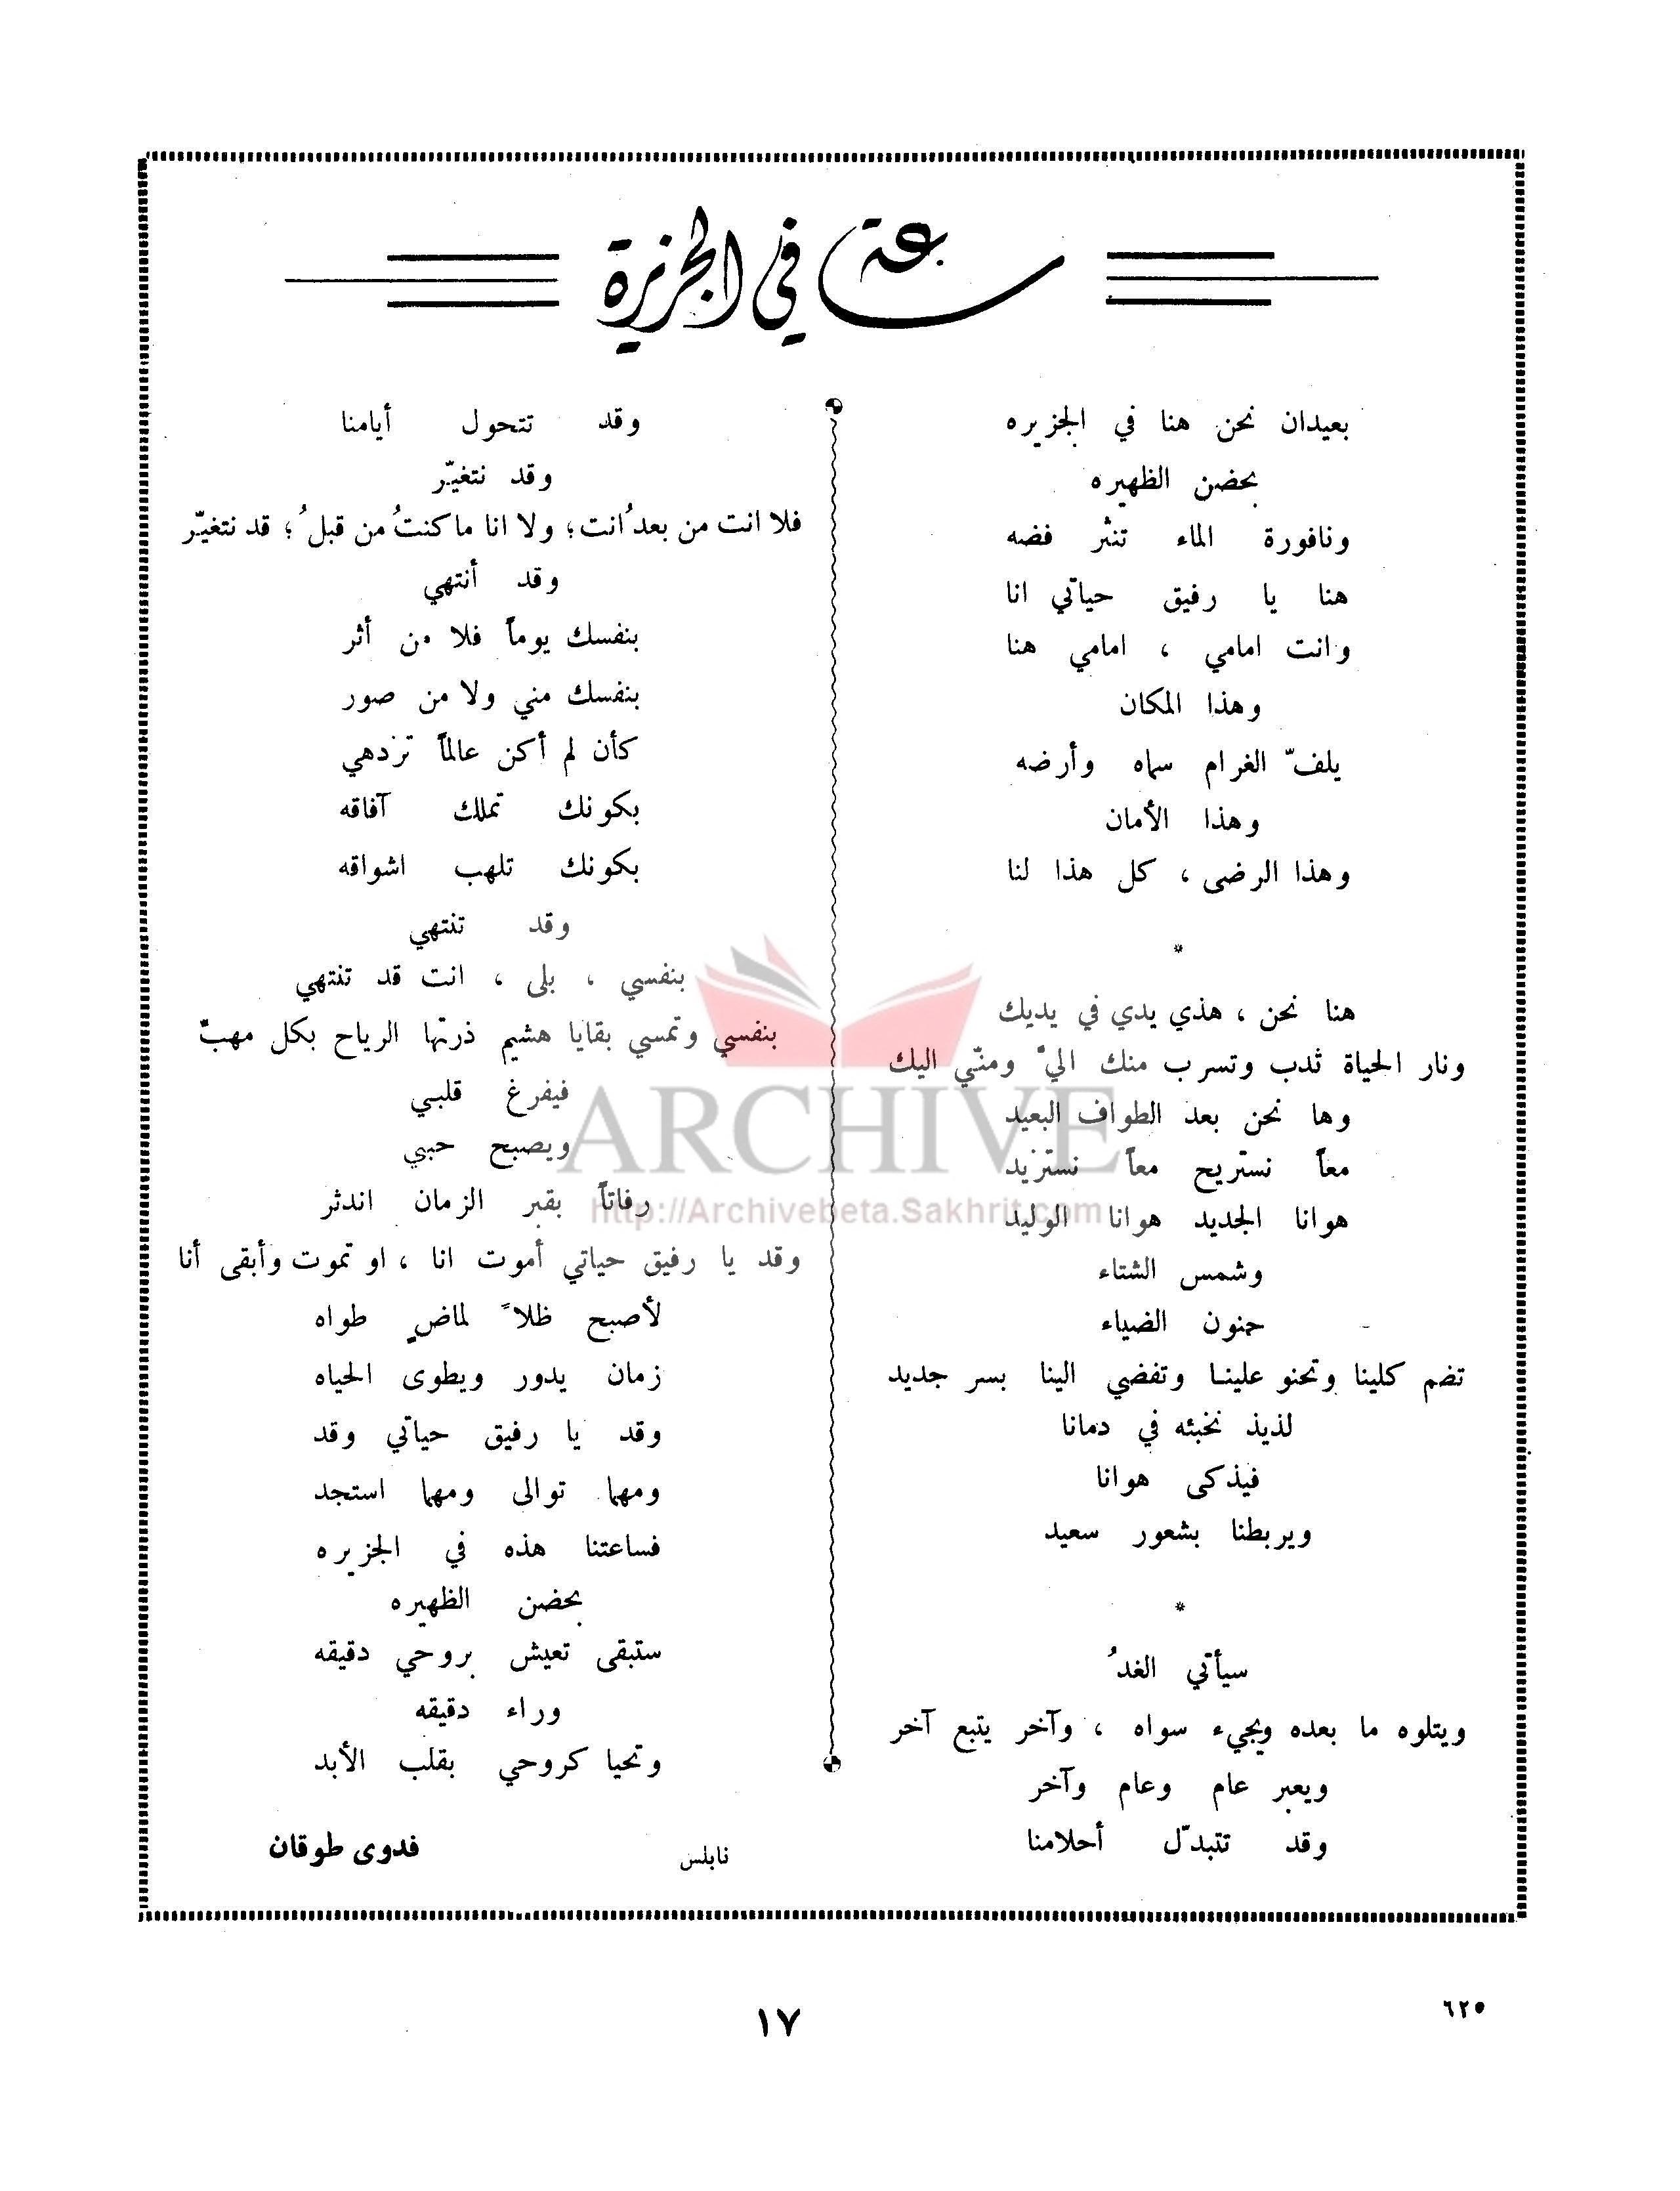 ساعة في الجزيرة
بعيدان نحن هنا في الجزيره
بحضن الظهيره
ونافورة الماء تنثر فضه
هنا يا رفيق حياتي انا
وانت امامي ، امامي هنا
وهذا المكان
يلفّ الغرام سماه وأرضه
وهذا الأمان
وهذا الرضى ، كل هذا لنا
*
هنا نحن ، هذي يدي في يديك
ونار الحياة تدب وتسرب منك اليّ ومنّي اليك
وها نحن بعد الطواف البعيد
معاً نستريح معاً نستزيد
هوانا الجديد هوانا الوليد
وشمس الشتاء
حنون الضياء
تضم كلينا وتحنو علينا وتفضي الينا بسر جديد
لذيذ نخبئه في دمانا
فيذكى هوانا
ويربطنا بشعور سعيد
*
سيأتي الغدُ
ويتلوه ما بعده ويجيء سواه ، وآخر يتبع آخر
ويعبر عام وعام وآخر
وقد تتبدّل أحلامنا
وقد تتحول أيامنا
وقد نتغيّر
فلا انت من بعدُ انت ؛ ولا انا ما كنتُ من قبلُ ؛ قد نتغيّر
وقد أنتهي
بنفسك يوماً فلا من أثر
بنفسك مني ولا من صور
كأن لم أكن عالماً تزدهي
بكونك تملك آفاقه
بكونك تلهب اشواقه
وقد تنتهي
بنفسي ، بلى ، انت قد تنتهي
بنفسي وتمسي بقايا هشيم ذرتها الرياح بكل مهبّ
فيفرغ قلبي
ويصبح حبي
رفاتاً بقبر الزمان اندثر
وقد يا رفيق حياتي أموت انا ، او تموت وأبقى أنا
لأصبح ظلاً لماضٍ طواه
زمان يدور ويطوى الحياه
وقد يا رفيق حياتي وقد
ومهما توالى ومهما استجد
فساعتنا هذه في الجزيره
بحضن الظهيره
ستبقى تعيش بروحي دقيقه
وراء دقيقه
وتحيا كروحي بقلب الأبد
نابلس
فدوى طوقان
ARCHIVE
http://Archivebeta.Sakhrit.com
١٧
٦٢٥